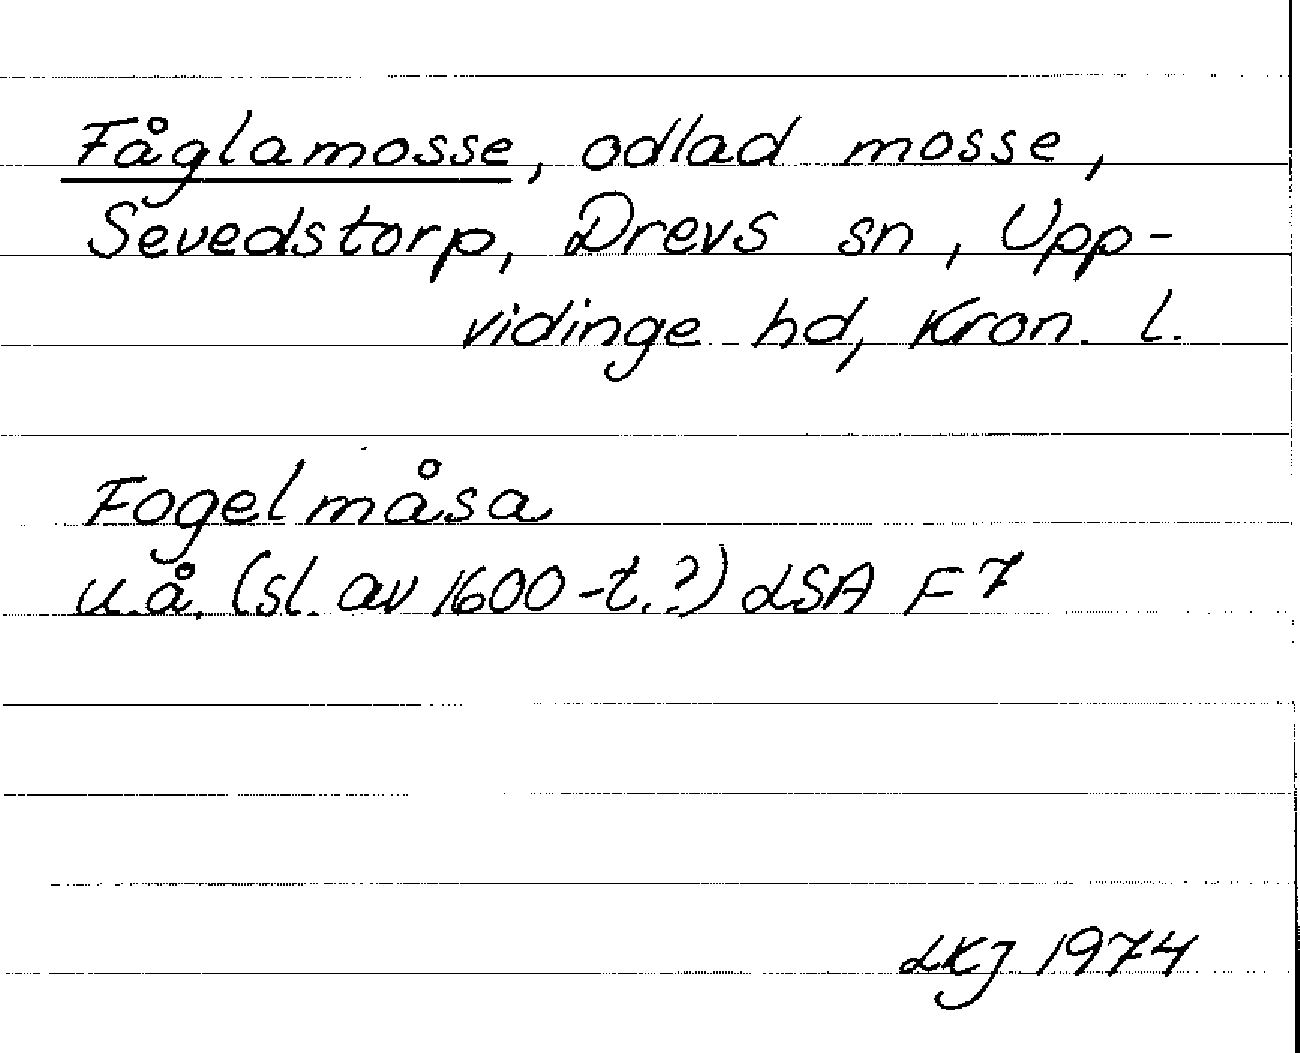 Fåglamosse, odlad mosse,
Sevedstorp, Drevs sn, Upp-
vidinge hd, Kron. l.
Fogelmåsa
u.å. (sl. av 1600-t.?) LSA F7
LKJ 1974